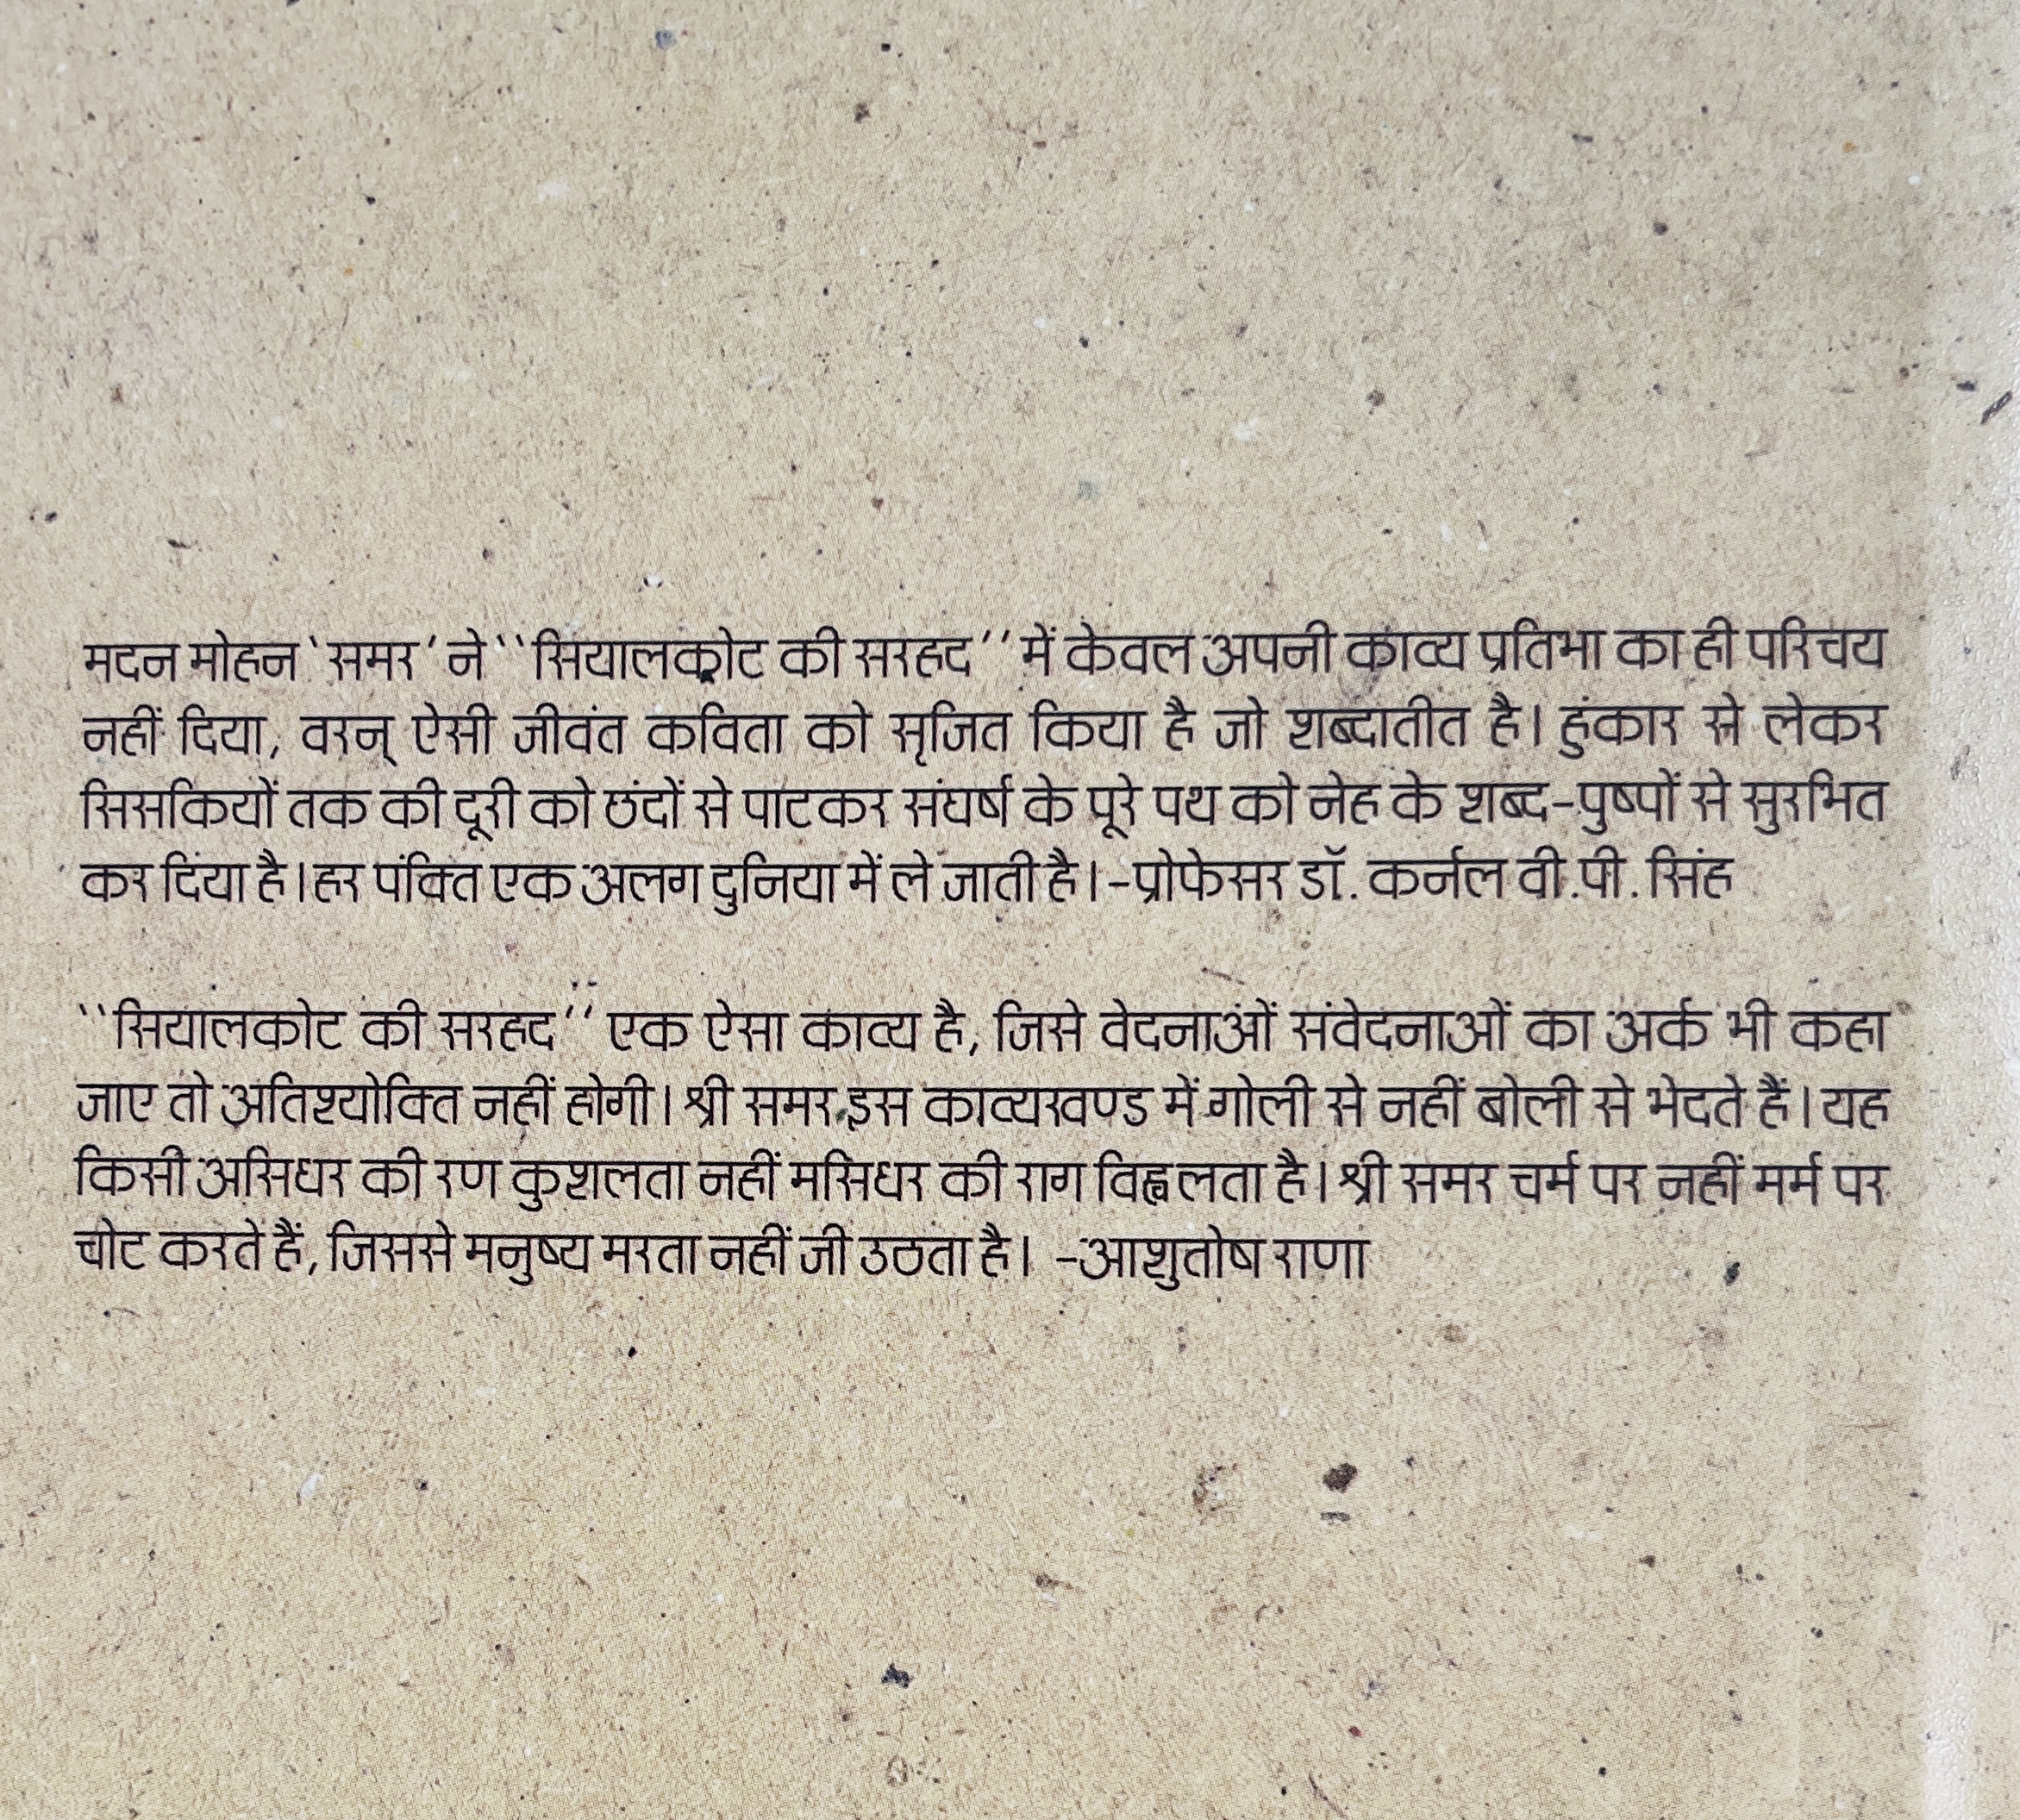 मदन मोहन ‘समर’ ने ‘‘सियालकोट की सरहद’’ में केवल अपनी काव्य प्रतिभा का ही परिचय
नहीं दिया, वरन् ऐसी जीवंत कविता को सृजित किया है जो शब्दातीत है। हुंकार से लेकर
सिसकियों तक की दूरी को छंदों से पाटकर संघर्ष के पूरे पथ को नेह के शब्द-पुष्पों से सुरभित
कर दिया है। हर पंक्ति एक अलग दुनिया में ले जाती है। -प्रोफेसर डॉ. कर्नल वी.पी. सिंह
‘‘सियालकोट की सरहद’’ एक ऐसा काव्य है, जिसे वेदनाओं संवेदनाओं का अर्क भी कहा
जाए तो अतिश्योक्ति नहीं होगी। श्री समर इस काव्यखण्ड में गोली से नहीं बोली से भेदते हैं। यह
किसी असिधर की रण कुशलता नहीं मसिधर की राग विह्वलता है। श्री समर चर्म पर नहीं मर्म पर
चोट करते हैं, जिससे मनुष्य मरता नहीं जी उठता है। -आशुतोष राणा